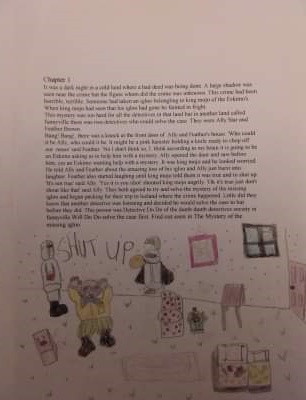 Chapter 1
It was a dark night in a cold land where a bad deed was being done. A large shadow was
seen near the crime but the figure whom did the crime was unknown. This crime had been
horrible, terrible. Someone had taken an igloo belonging to king mojo of the Eskimo's.
When king mojo had seen that his igloo had gone he fainted in fright.
This mystery was too hard for all the detectives in that land but in another land called
funnyville there was two detectives who could solve the case. They were Ally Ally and
Feather Brown.
Bang! Bang!, there was a knock at the front door of Ally and Feather's house. 'Who could
it be Ally, who could it be. It might be a pink hamster holding a knife ready to chop off
our noses' said Feather. 'No I don't think so, I think according to my brain it is going to be
an Eskimo asking us to help him with a mystery. Ally opened the door and saw before
him, an Eskimo wanting help with a mystery. It was king mojo and he looked worried.
He told Ally and Feather about the amazing loss of his igloo and Ally just burst into
laughter. Feather also started laughing until king mojo told them it was true and to shut up.
'It's not true' said Ally. 'Yes it is you idiot' shouted king mojo angrily. 'Ok it's true just don't
shout like that' said Ally. They both agreed to try and solve the mystery of the missing
igloo and began packing for their trip to iceland where the crime happened. Little did they
know that another detective was listening and decided he would solve the case to but
before they did. This person was Detective Do Do of the dumb dumb detectives society in
funnyville Will Do Do solve the case first. Find out soon in The Mystery of the
missing igloo
SHUT UP